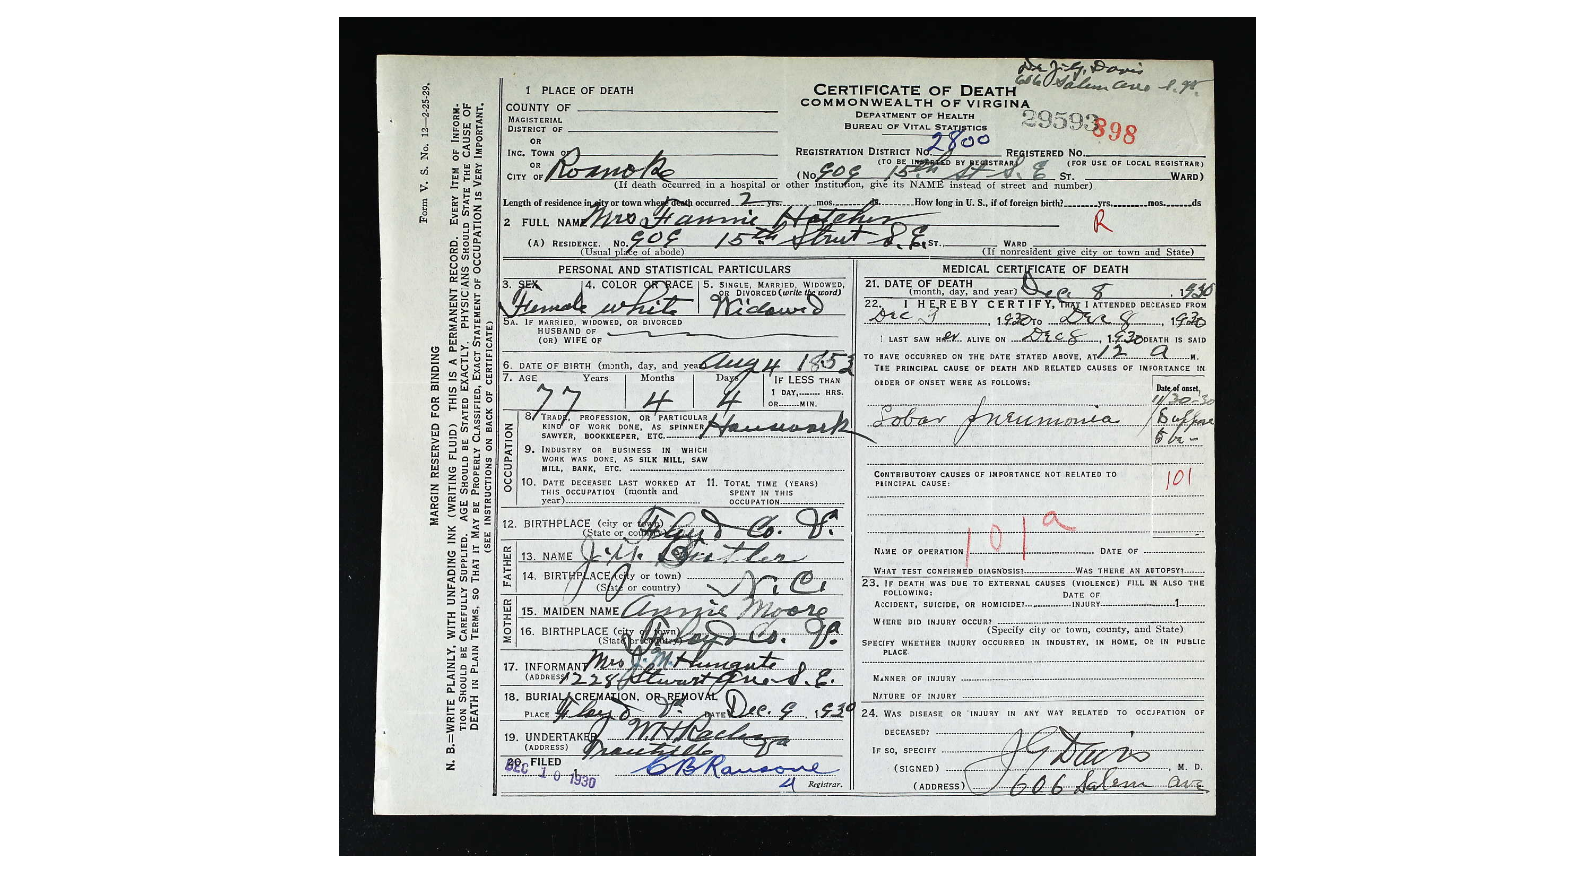 Dr. J. G. Davis
606 Salem Ave S.W.
1 PLACE OF DEATH
CERTIFICATE OF DEATH
COUNTY OF
COMMONWEALTH OF VIRGINIA
MAGISTERIAL
DISTRICT OF
DEPARTMENT OF HEALTH
BUREAU OF VITAL STATISTICS
29593 898
OR
INC. TOWN OF
REGISTRATION DISTRICT NO. 2800 REGISTERED NO.
(TO BE INSERTED BY REGISTRAR) (FOR USE OF LOCAL REGISTRAR)
OR
CITY OF Roanoke (No. 909 15th St S.E ST. WARD)
(If death occurred in a hospital or other institution, give its NAME instead of street and number)
Length of residence in city or town where death occurred 2 yrs. mos. ds. How long in U. S., if of foreign birth? yrs. mos. ds
2 FULL NAME Mrs Fannie Hatcher R
(A) RESIDENCE. NO. 909 15th Street S.E. ST. WARD
(Usual place of abode) (If nonresident give city or town and State)
PERSONAL AND STATISTICAL PARTICULARS
3. SEX 4. COLOR OR RACE 5. SINGLE, MARRIED, WIDOWED, OR DIVORCED (write the word)
Female white Widowed
5A. IF MARRIED, WIDOWED, OR DIVORCED
HUSBAND OF
(OR) WIFE OF
6. DATE OF BIRTH (month, day, and year) Aug 4 1853
7. AGE Years Months Days IF LESS THAN
1 DAY, HRS.
OR MIN.
77 4 4
OCCUPATION
8. TRADE, PROFESSION, OR PARTICULAR
KIND OF WORK DONE, AS SPINNER,
SAWYER, BOOKKEEPER, ETC. Housework
9. INDUSTRY OR BUSINESS IN WHICH
WORK WAS DONE, AS SILK MILL, SAW
MILL, BANK, ETC.
10. DATE DECEASED LAST WORKED AT
THIS OCCUPATION (month and
year)
11. TOTAL TIME (YEARS)
SPENT IN THIS
OCCUPATION
12. BIRTHPLACE (city or town)
(State or country) Floyd Co. Va.
FATHER
13. NAME Butler
14. BIRTHPLACE (city or town)
(State or country) N. C.
MOTHER
15. MAIDEN NAME Annie Moore
16. BIRTHPLACE (city or town)
(State or country) Floyd Co. Va.
17. INFORMANT Mrs J. M. Hungate
(ADDRESS) 1228 Stewart Ave S. E.
18. BURIAL, CREMATION, OR REMOVAL
PLACE Floyd Va. DATE Dec. 9, 1930
19. UNDERTAKER
(ADDRESS) Troutville Va
20. FILED DEC 10 1930 C B Ransone
4 Registrar.
MEDICAL CERTIFICATE OF DEATH
21. DATE OF DEATH
(month, day, and year) Dec 8, 1930
22. I HEREBY CERTIFY, THAT I ATTENDED DECEASED FROM
Dec , 1930 TO Dec 8, 1930
I LAST SAW HER ALIVE ON Dec 8, 1930 DEATH IS SAID
TO HAVE OCCURRED ON THE DATE STATED ABOVE, AT 12 a M.
THE PRINCIPAL CAUSE OF DEATH AND RELATED CAUSES OF IMPORTANCE IN
ORDER OF ONSET WERE AS FOLLOWS:
Date of onset
11/30-30
Lobar Pneumonia
CONTRIBUTORY CAUSES OF IMPORTANCE NOT RELATED TO
PRINCIPAL CAUSE:
101
101a
NAME OF OPERATION DATE OF
WHAT TEST CONFIRMED DIAGNOSIS? WAS THERE AN AUTOPSY?
23. IF DEATH WAS DUE TO EXTERNAL CAUSES (VIOLENCE) FILL IN ALSO THE
FOLLOWING:
ACCIDENT, SUICIDE, OR HOMICIDE? DATE OF INJURY 1
WHERE DID INJURY OCCUR?
(Specify city or town, county, and State)
SPECIFY WHETHER INJURY OCCURRED IN INDUSTRY, IN HOME, OR IN PUBLIC
PLACE
MANNER OF INJURY
NATURE OF INJURY
24. WAS DISEASE OR INJURY IN ANY WAY RELATED TO OCCUPATION OF
DECEASED?
IF SO, SPECIFY
(SIGNED) J G Davis, M. D.
(ADDRESS) 606 Salem Ave
Form V. S. No. 12—2-25-29.
MARGIN RESERVED FOR BINDING
N. B.—WRITE PLAINLY, WITH UNFADING INK (WRITING FLUID) THIS IS A PERMANENT RECORD. EVERY ITEM OF INFORM-
TION SHOULD BE CAREFULLY SUPPLIED. AGE SHOULD BE STATED EXACTLY. PHYSICIANS SHOULD STATE THE CAUSE OF
DEATH IN PLAIN TERMS, SO THAT IT MAY BE PROPERLY CLASSIFIED. EXACT STATEMENT OF OCCUPATION IS VERY IMPORTANT.
(SEE INSTRUCTIONS ON BACK OF CERTIFICATE)